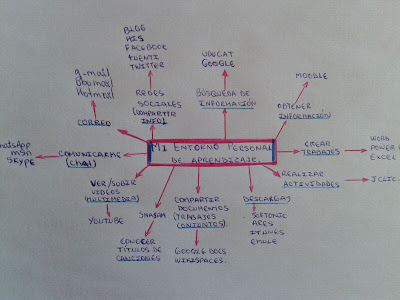 BLOG
HI5
FACEBOOK
TUENTI
TWITTER
UVUCAT
GOOGLE
MOODLE
g-mail
Hotmail
REDES
SOCIALES
(COMPARTIR
INFO)
BÚSQUEDA DE
INFORMACIÓN
OBTENER
INFORMACIÓN
CORREO
MI ENTORNO PERSONAL
DE APRENDIZAJE.
WhatsApp
MSN
SKYPE
COMUNICARME
(CHAT)
CREAR
TRABAJOS
WORD
POWER
EXCEL
VER/SUBIR
VIDEOS
(MULTIMEDIA)
YOUTUBE
SHAZAM
CONOCER
TÍTULOS DE
CANCIONES
COMPARTIR
DOCUMENTOS
(TRABAJOS
CONJUNTOS)
GOOGLE DOCS
WIKISPACES.
DESCARGAS
SOFTONIC
ARES
ITUNES
EMULE
REALIZAR
ACTIVIDADES
JCLIC.